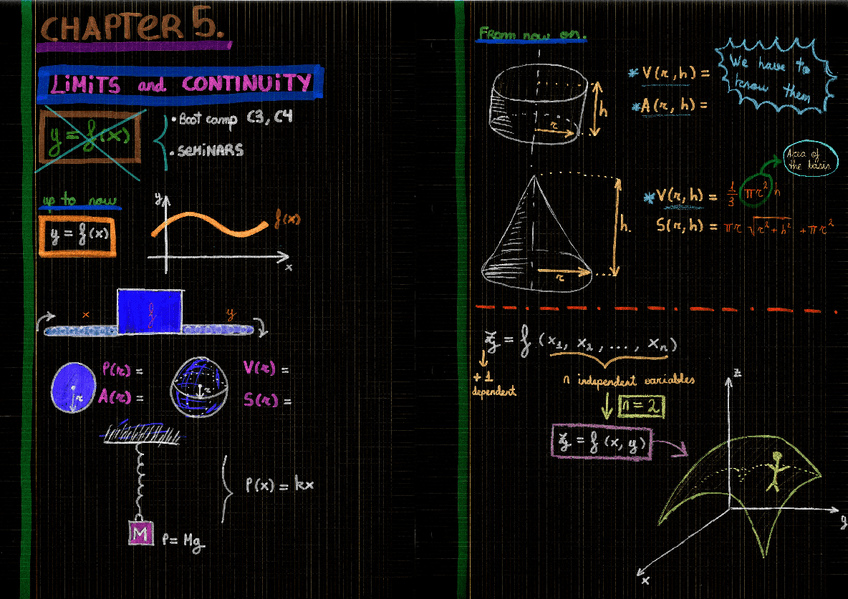 CHAPTER 5.
LIMITS and CONTINUITY
y = f(x)
• Boot camp C3, C4
• SEMINARS
up to now
y = f(x)
y
f(x)
x
x
f
y
r
P(r) =
A(r) =
r
V(r) =
S(r) =
P(x) = kx
M
P = Mg
From now on.
h
r
* V(r, h) =
* A(r, h) =
We have to
know them
Area of
the basis
h.
r
* V(r, h) = 1/3 πr² h
S(r, h) = πr √(r² + h²) + πr²
z = f (x₁, x₂, ..., xₙ)
+ 1
dependent
n independent variables
n = 2
z = f (x, y)
z
y
x